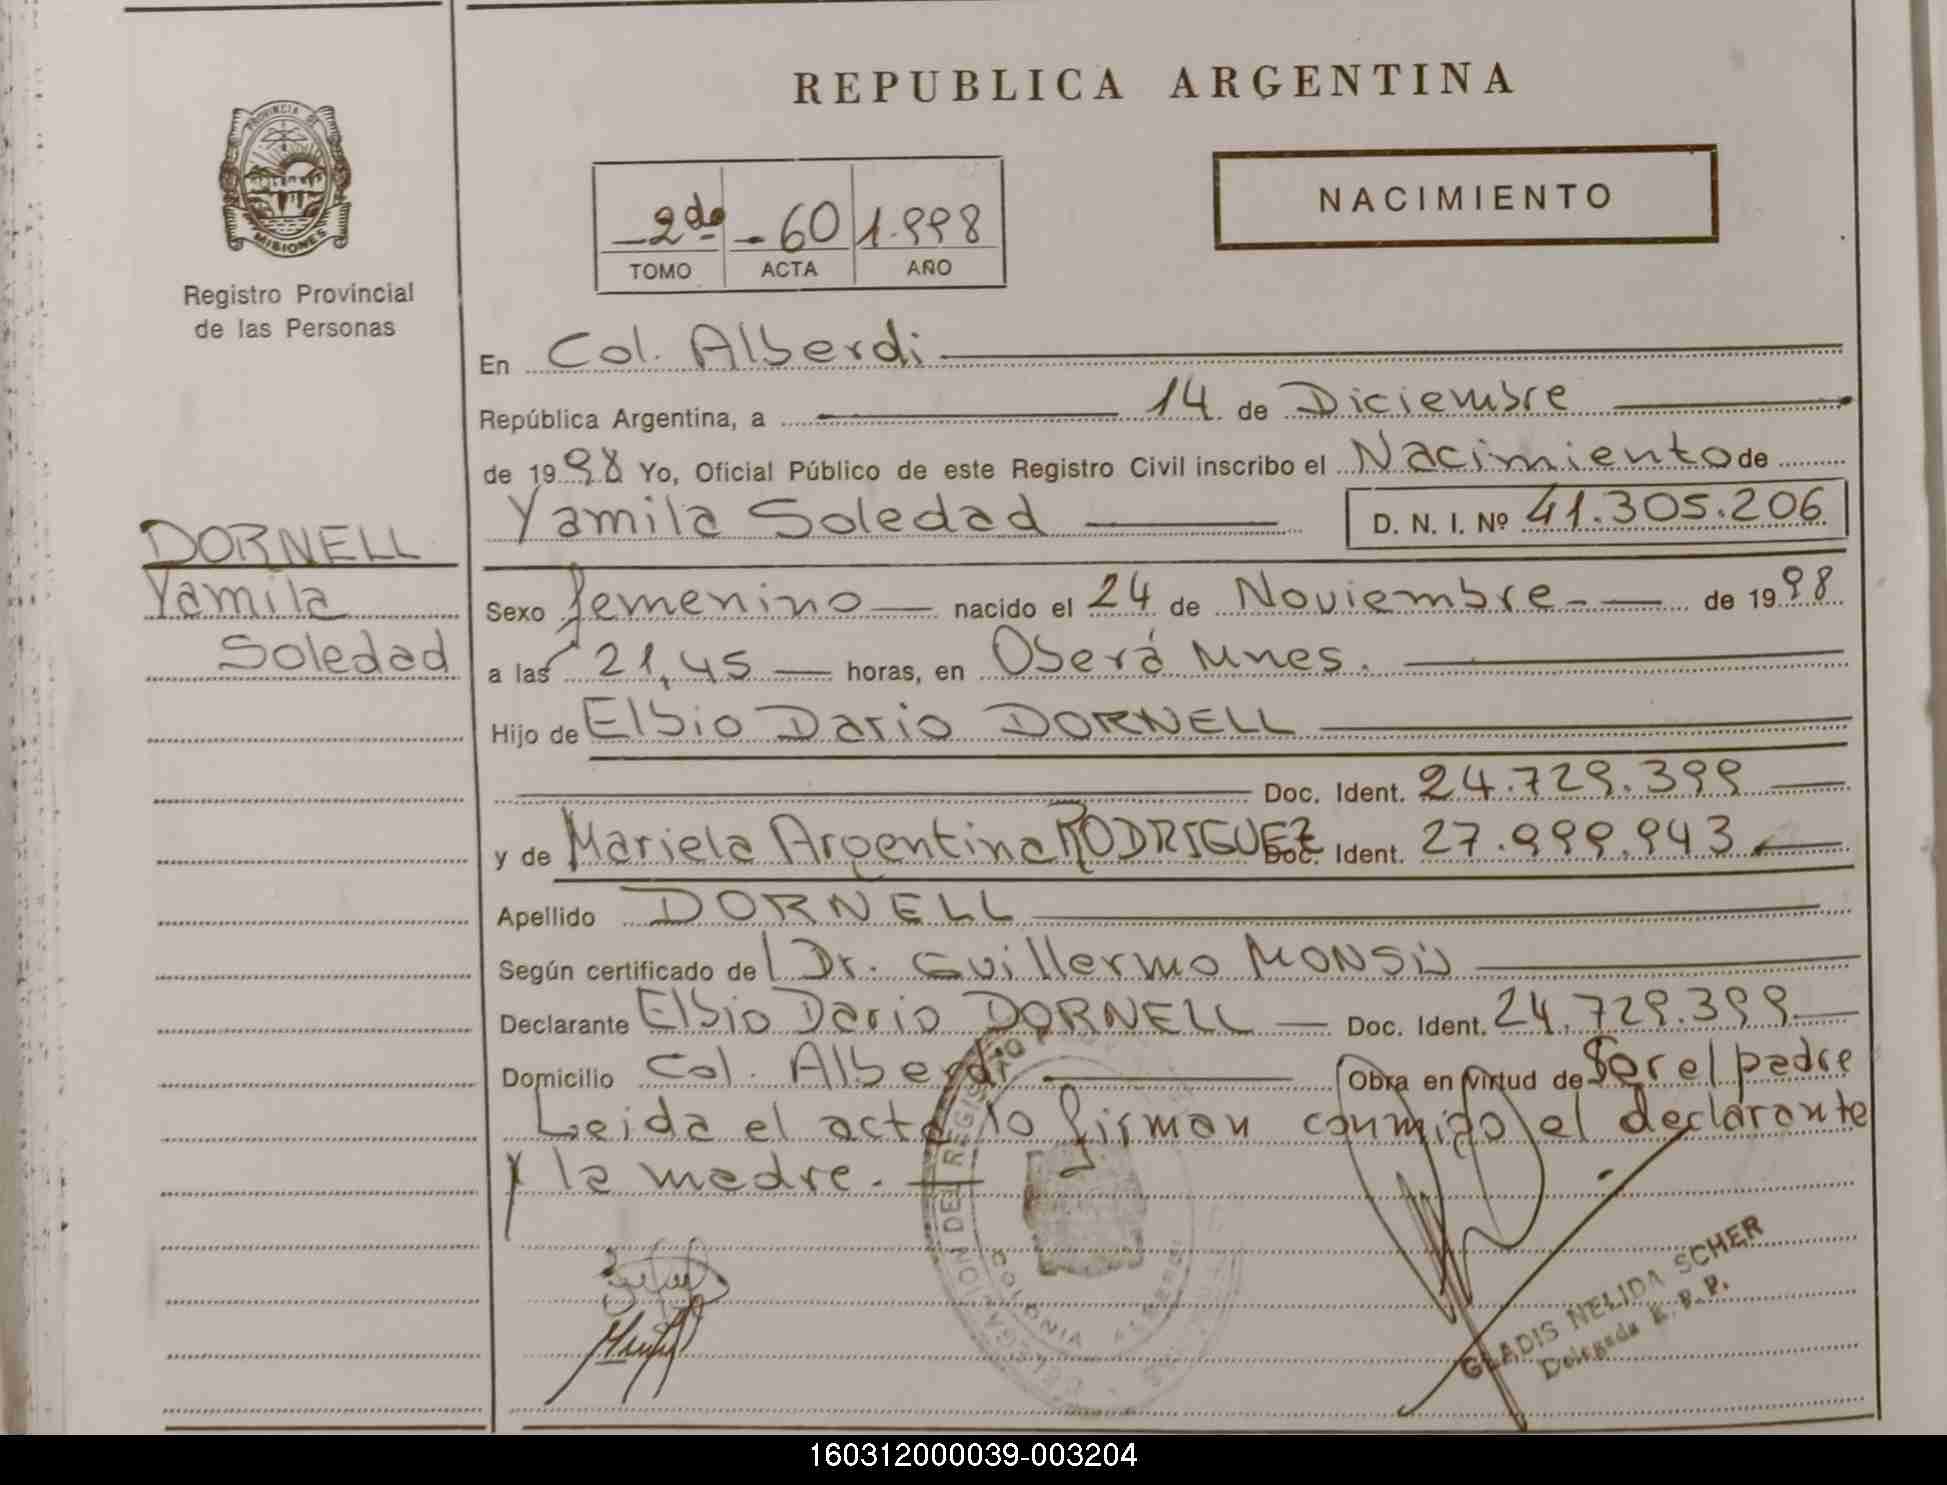 REPUBLICA ARGENTINA
PROVINCIA DE
MISIONES
Registro Provincial
de las Personas
2do 60 1.998
TOMO ACTA AÑO
NACIMIENTO
En Col. Alberdi
República Argentina, a 14 de Diciembre
de 1998 Yo, Oficial Público de este Registro Civil inscribo el Nacimiento de
Yamila Soledad D. N. I. Nº 41.305.206
DORNELL
Yamila
Soledad
Sexo femenino nacido el 24 de Noviembre de 1998
a las 21,45 horas, en Oberá Mnes.
Hijo de Elbio Dario DORNELL
Doc. Ident. 24.729.399
y de Mariela Argentina RODRIGUEZ Doc. Ident. 27.999.943
Apellido DORNELL
Según certificado de Dr. Guillermo
Declarante Elbio Dario DORNELL Doc. Ident. 24.729.399
Domicilio Col. Alberdi Obra en virtud de Ser el padre
Leida el acta lo firman conmigo el declarante
y la madre.
COLONIA ALBERDI
GLADIS NELIDA SCHER
Delegada R. P. P.
160312000039-003204